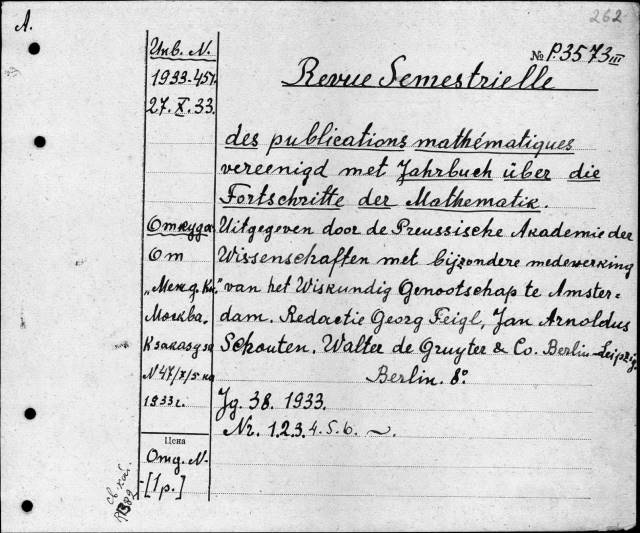 A.
262
№ P.3573 III
Инв. N.
1933-457
27.X.33.
Revue Semestrielle
des publications mathématiques
vereenigd met Jahrbuch über die
Fortschritte der Mathematik.
Откуда
От
„Межд. Кн."
Москва.
К заказу за
N 47/7/5 на
1933 г.
Uitgegeven door de Preussische Akademie der
Wissenschaften met bijzondere medewerking
van het Wiskundig Genootschap te Amster-
dam. Redactie Georg Feigl, Jan Arnoldus
Schouten. Walter de Gruyter & Co. Berlin-Leipzig.
Berlin. 8°.
Jg. 38. 1933.
Nr. 1.2.3.4.5.6.
Цена
Отд. N.
[1р.]